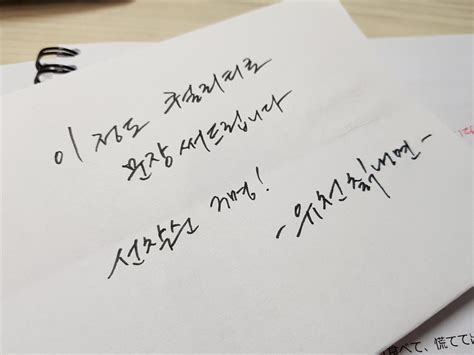 이 정도 퀄리티로
문장 써드립니다
선착순 7명!
-위천칠백면-
食べて、慌てて